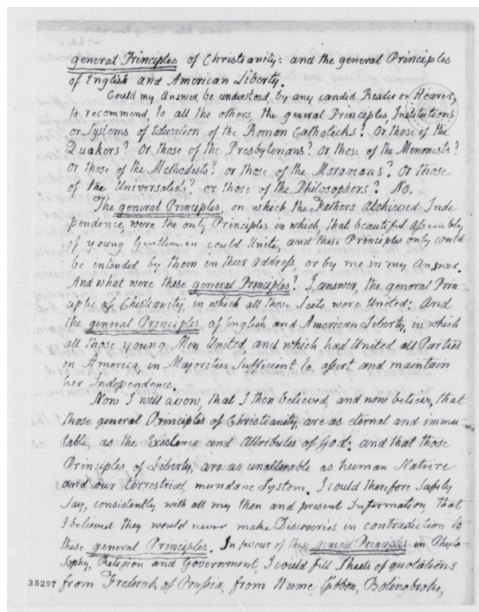 general Principles of Christianity: and the general Principles
of English and American Liberty.
Could my Answer be understood, by any candid Reader or Hearer,
to recommend, to all the others, the general Principles, Institutions
or Systems of Education of the Roman Catholicks? Or those of the
Quakers? Or those of the Presbyterians? Or those of the Menonists?
Or those of the Methodists? or those of the Moravians? Or those
of the Universalists? or those of the Philosophers? No.
The general Principles, on which the Fathers Atchieved Inde
pendence, were the only Principles in which, that beautiful Assembly
of young Gentlemen could Unite, and these Principles only could
be intended by them in their Address, or by me in my Answer.
And what were these general Principles? I answer, the general Prin-
ciples of Christianity, in which all those Sects were United: And
the general Principles of English and American Liberty, in which
all those young Men United, and which had United all Parties
in America, in Majorities Sufficient to assert and maintain
her Independence.
Now I will avow, that I then believed, and now believe, that
those general Principles of Christianity, are as eternal and immu-
table, as the Existence and Attributes of God: and that those
Principles of Liberty, are as unalterable as human Nature
and our terrestrial, mundane System. I could therefore Safely
Say, consistently with all my then and present Information, that
I believed they would never make Discoveries in contradiction to
these general Principles. In favour of these general Principles in Phylo-
sophy, Religion and Government, I could fill Sheets of quotations
35297 from Frederick of Prussia, from Hume, Gibbon, Bolingbroke,